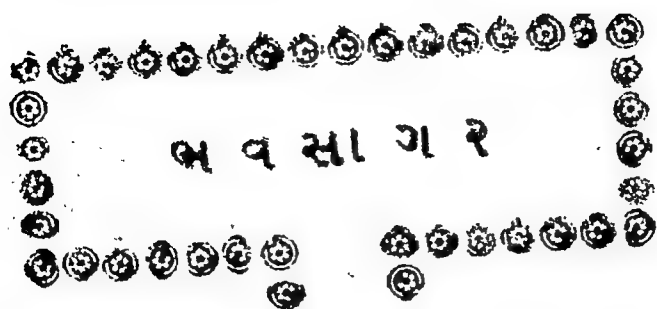 ભવસાગર